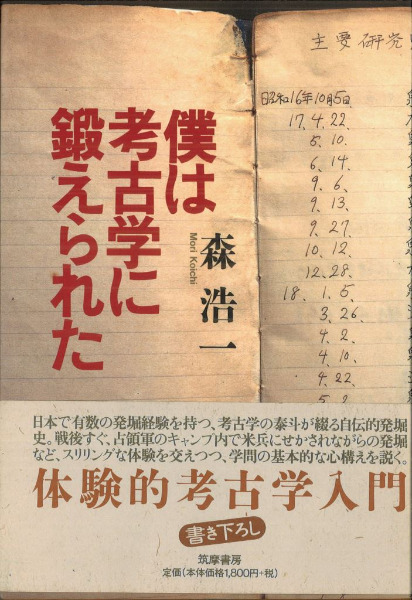 僕は
考古学に
鍛えられた
森 浩一
Mori Koichi
主要研究
昭和16年10月5日
17. 4. 22.
5. 10.
6. 14.
9. 6.
9. 13.
9. 27.
10. 12.
12. 28.
18. 1. 5.
3. 26.
4. 2.
4. 10.
4. 22.
5. 2.
日本で有数の発掘経験を持つ、考古学の泰斗が綴る自伝的発掘
史。戦後すぐ、占領軍のキャンプ内で米兵にせかされながらの発掘
など、スリリングな体験を交えつつ、学問の基本的な心構えを説く。
体験的考古学入門
書き下ろし
筑摩書房
定価(本体価格1,800円+税)